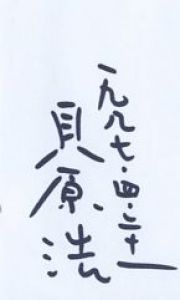 一九八七・四・二十一
貝原浩